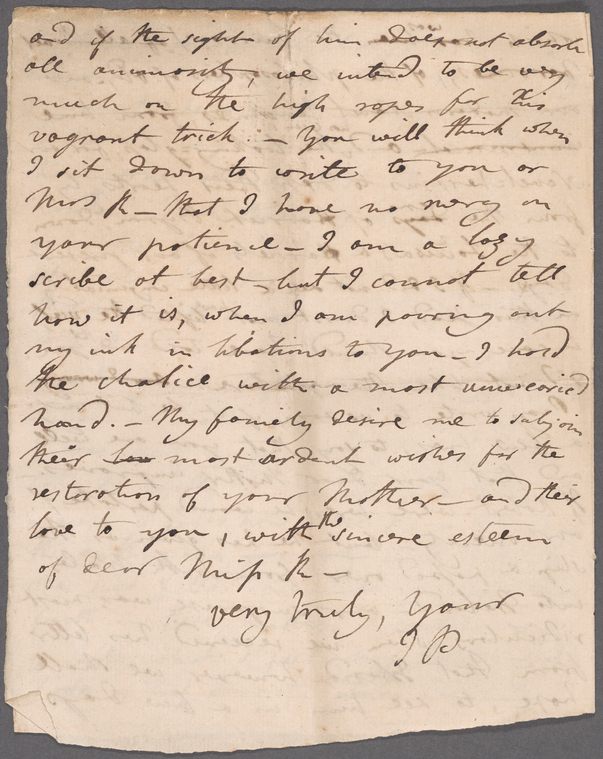 and if the sight of him does not absorb
all animosity, we intend to be very
much on the high ropes for this
vagrant trick. – You will think when
I sit down to write to you or
Mrs R – that I have no mercy on
your patience – I am a lazy
scribe at best – but I cannot tell
how it is, when I am pouring out
my ink in libations to you – I hold
the chalice with a most unwearied
hand. – My family desire me to subjoin
their most ardent wishes for the
restoration of your Mother – and their
love to you, with the sincere esteem
of dear Miss R –
very truly, Your
J P